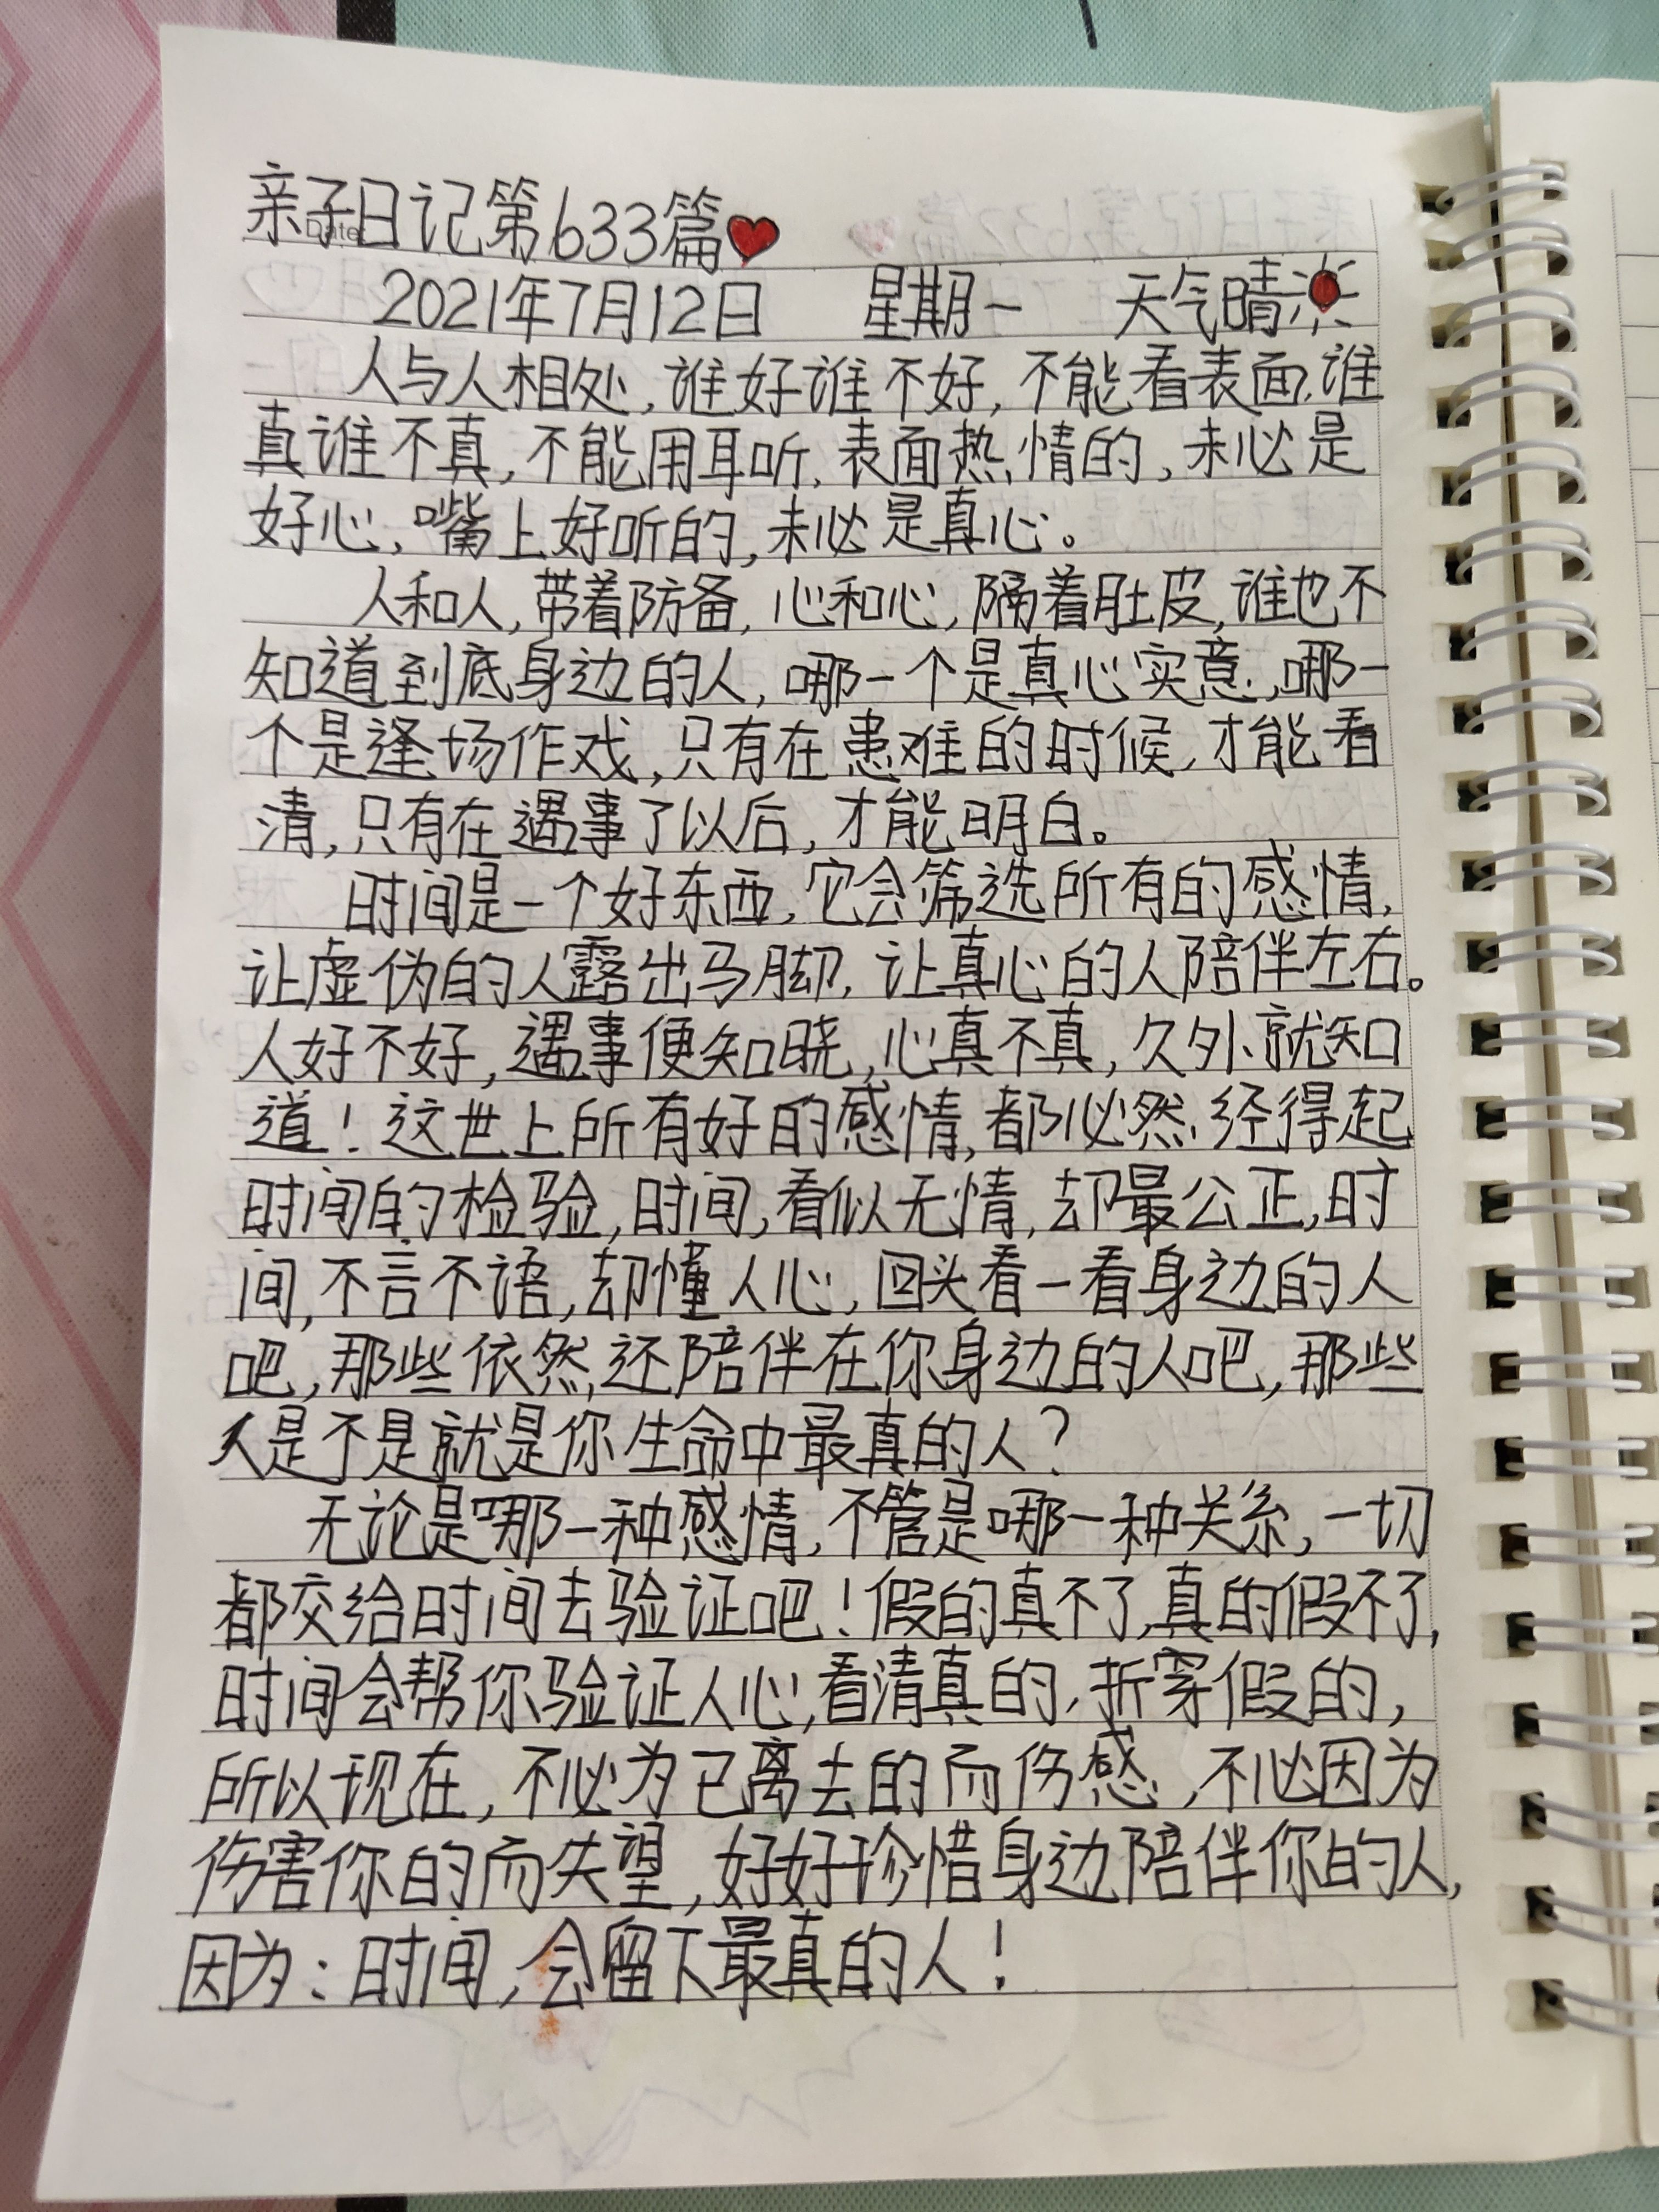 亲子日记第633篇
Date
2021年7月12日 星期一 天气晴
人与人相处,谁好谁不好,不能看表面,谁
真谁不真,不能用耳听,表面热情的,未必是
好心,嘴上好听的,未必是真心。
人和人,带着防备,心和心,隔着肚皮,谁也不
知道到底身边的人,哪一个是真心实意,哪一
个是逢场作戏,只有在患难的时候,才能看
清,只有在遇事了以后,才能明白。
时间是一个好东西,它会筛选所有的感情,
让虚伪的人露出马脚,让真心的人陪伴左右。
人好不好,遇事便知晓,心真不真,久外就知
道!这世上所有好的感情,都必然经得起
时间的检验,时间,看似无情,却最公正,时
间,不言不语,却懂人心,回头看一看身边的人
吧,那些依然还陪伴在你身边的人吧,那些
人是不是就是你生命中最真的人?
无论是哪一种感情,不管是哪一种关系,一切
都交给时间去验证吧!假的真不了,真的假不了,
时间会帮你验证人心,看清真的,折穿假的,
所以现在,不必为已离去的而伤感,不必因为
伤害你的而失望,好好珍惜身边陪伴你的人,
因为:时间,会留下最真的人!